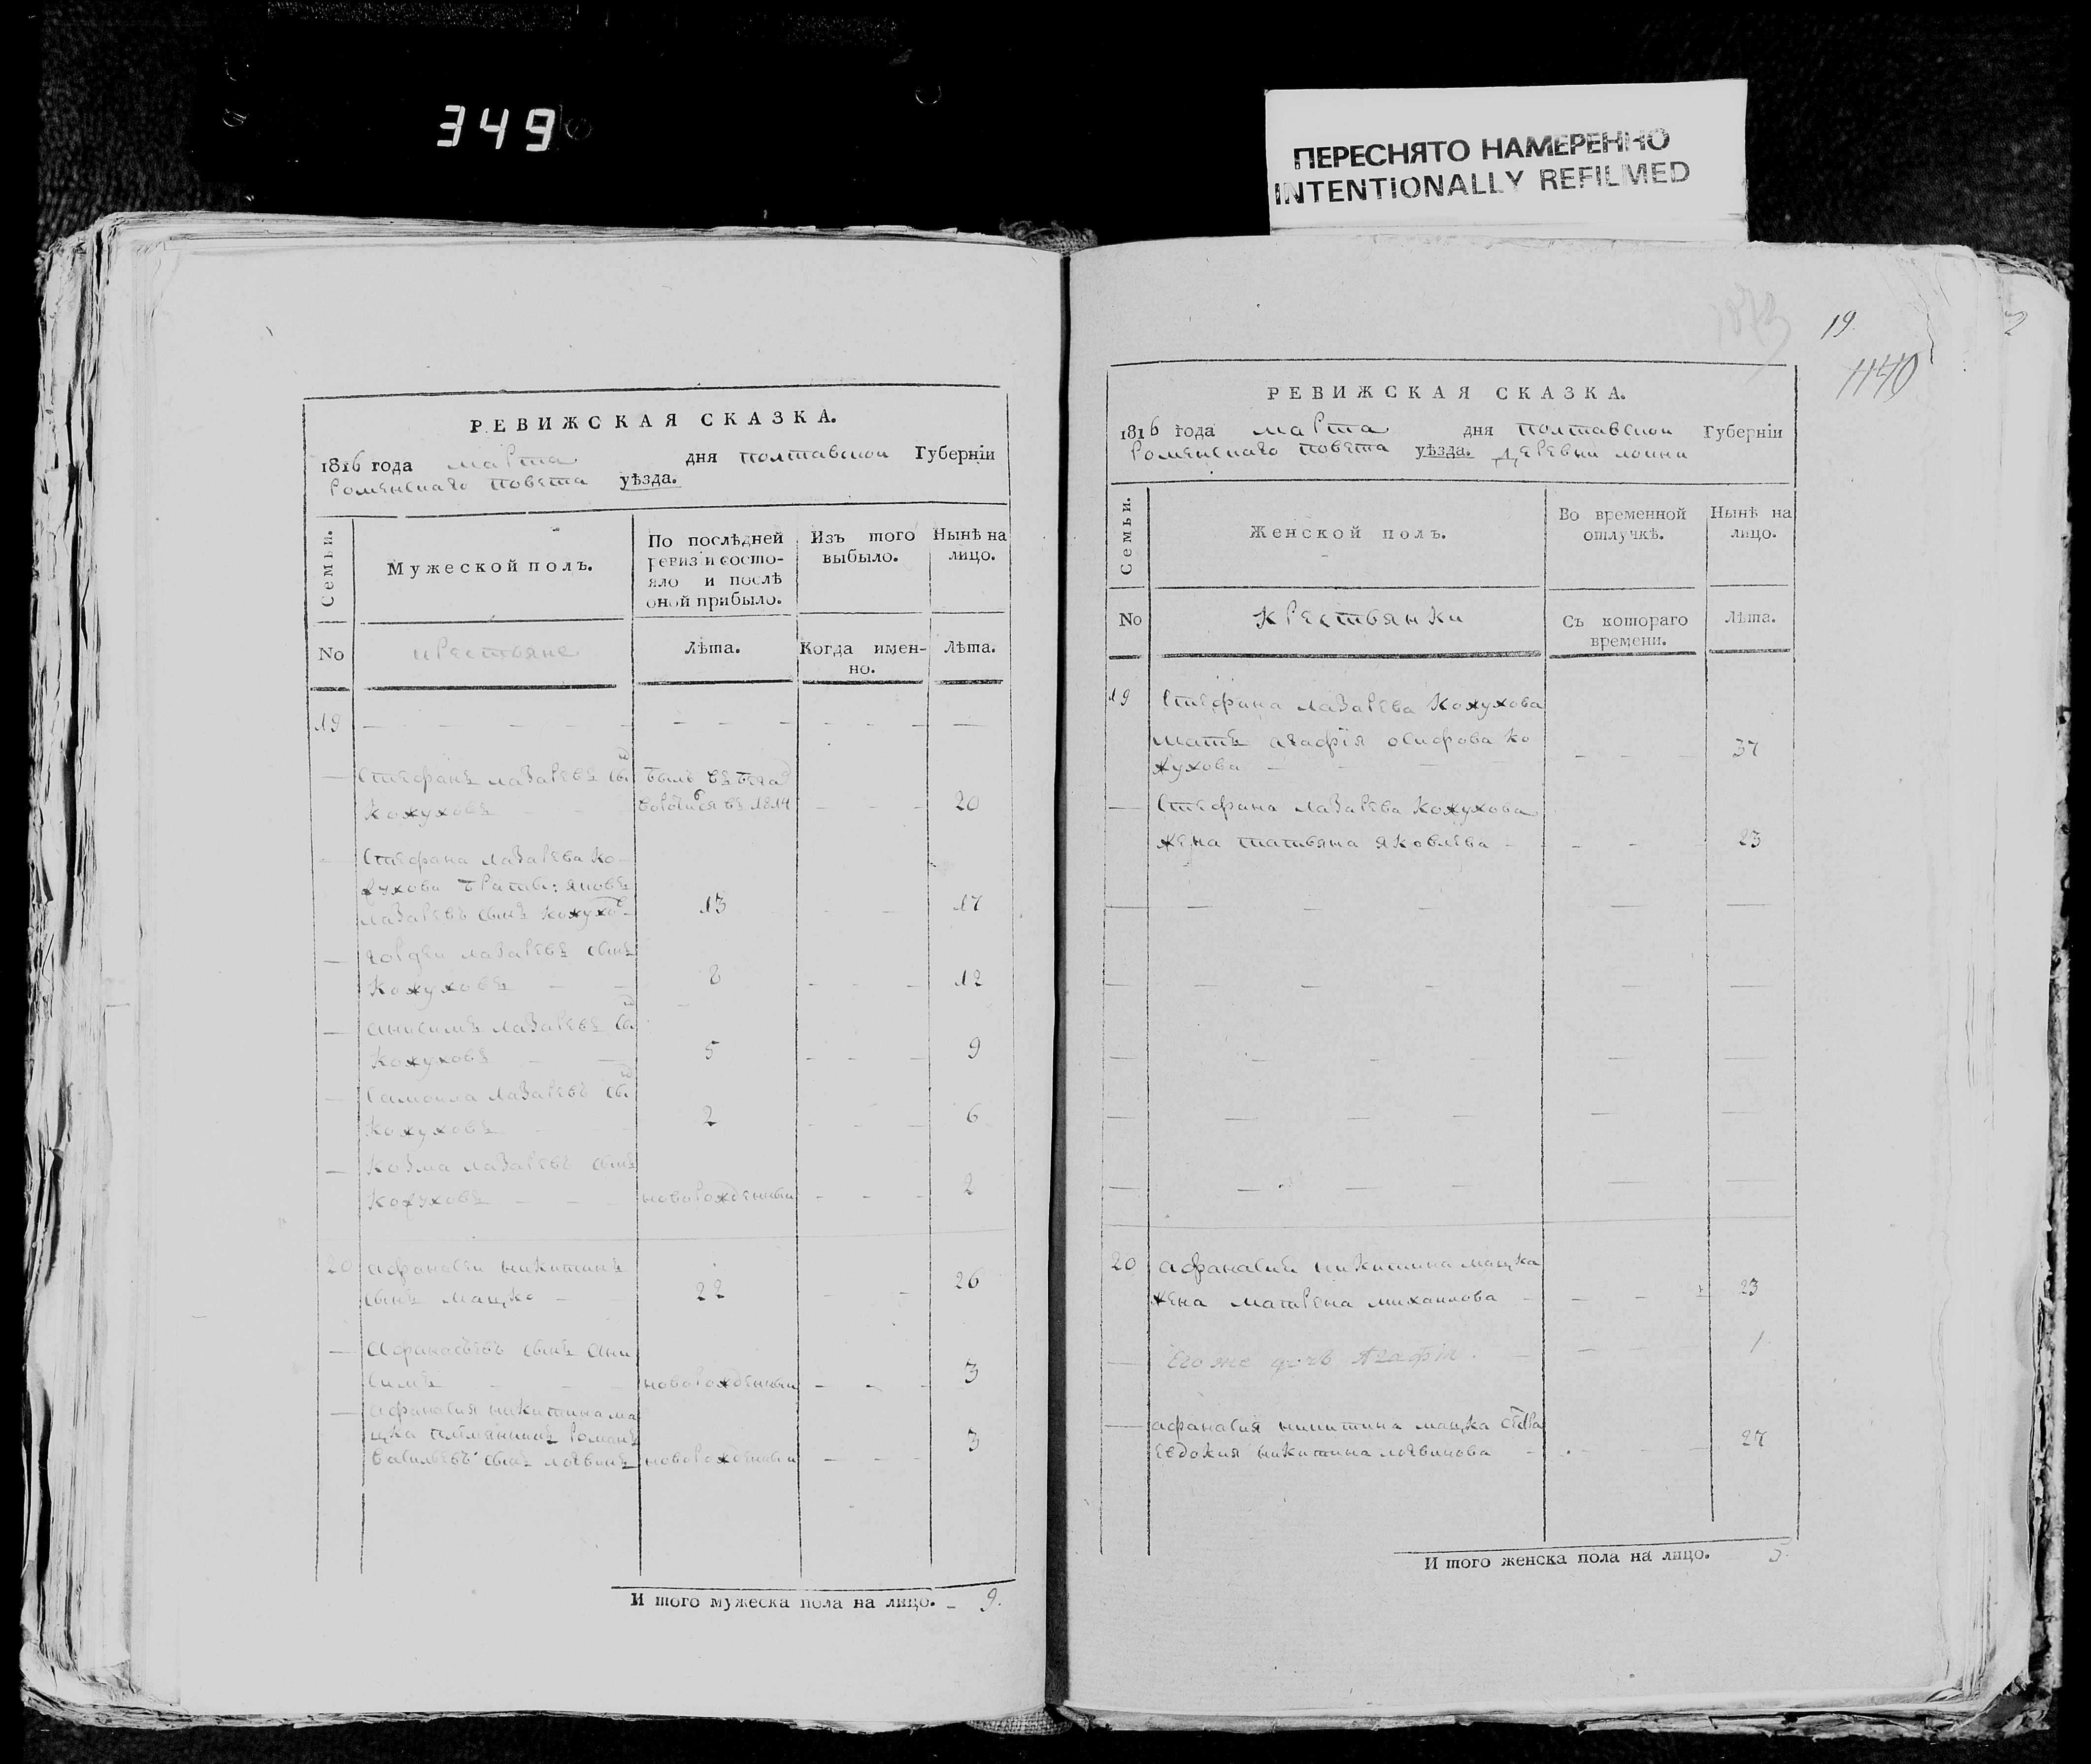 349
ПЕРЕСНЯТО НАМЕРЕННО
INTENTIONALLY REFILMED
РЕВИЖСКАЯ СКАЗКА.
1816 года марта дня полтавской Губерніи
Роменскаго повета уѣзда.
Семьи.
Мужеской полъ.
По послѣдней
ревизіи состо-
яло и послѣ
оной прибыло.
Изъ того
выбыло.
Нынѣ на
лицо.
No
крестьяне
Лѣта.
Когда имен-
но.
Лѣта.
19
Стефанъ лазаревъ сынъ былъ въ бега
Кожуховъ въ 1814 20
Стефана лазарева Ко-
жухова братья: яковъ
лазаревъ сынъ кожухов 13 17
гордей лазаревъ сынъ
Кожуховъ 8 12
анисимъ лазаревъ сынъ
Кожуховъ 5 9
Самойла лазаревъ сынъ
Кожуховъ 2 6
Козма лазаревъ сынъ
Кожуховъ новорожденный 2
20 афанасий никитинъ
сынъ мацко 22 26
афанасьевъ сынъ ани
симъ новорожденный 3
афанасия никитина ма
цка племянникъ романъ
васильевъ сынъ логвинъ новорожденный 3
И того мужеска пола на лицо. 9.
19
1140
РЕВИЖСКАЯ СКАЗКА.
1816 года марта дня полтавской Губерніи
Роменскаго повета уѣзда. деревни
Семьи.
Женской полъ.
Во временной
отлучкѣ.
Нынѣ на
лицо.
No
крестьянки
Съ котораго
времени.
Лѣта.
19 Стефана лазарева Кожухова
мать агафія осифова ко
жухова 37
Стефана лазарева Кожухова
жена татьяна яковлева 23
20 афанасия никитина мацка
жена матрена михаилова 23
Его же дочь Агафія. 1
афанасия никитина мацка сестра
евдокия никитина логвинова 27
И того женска пола на лицо. 5.